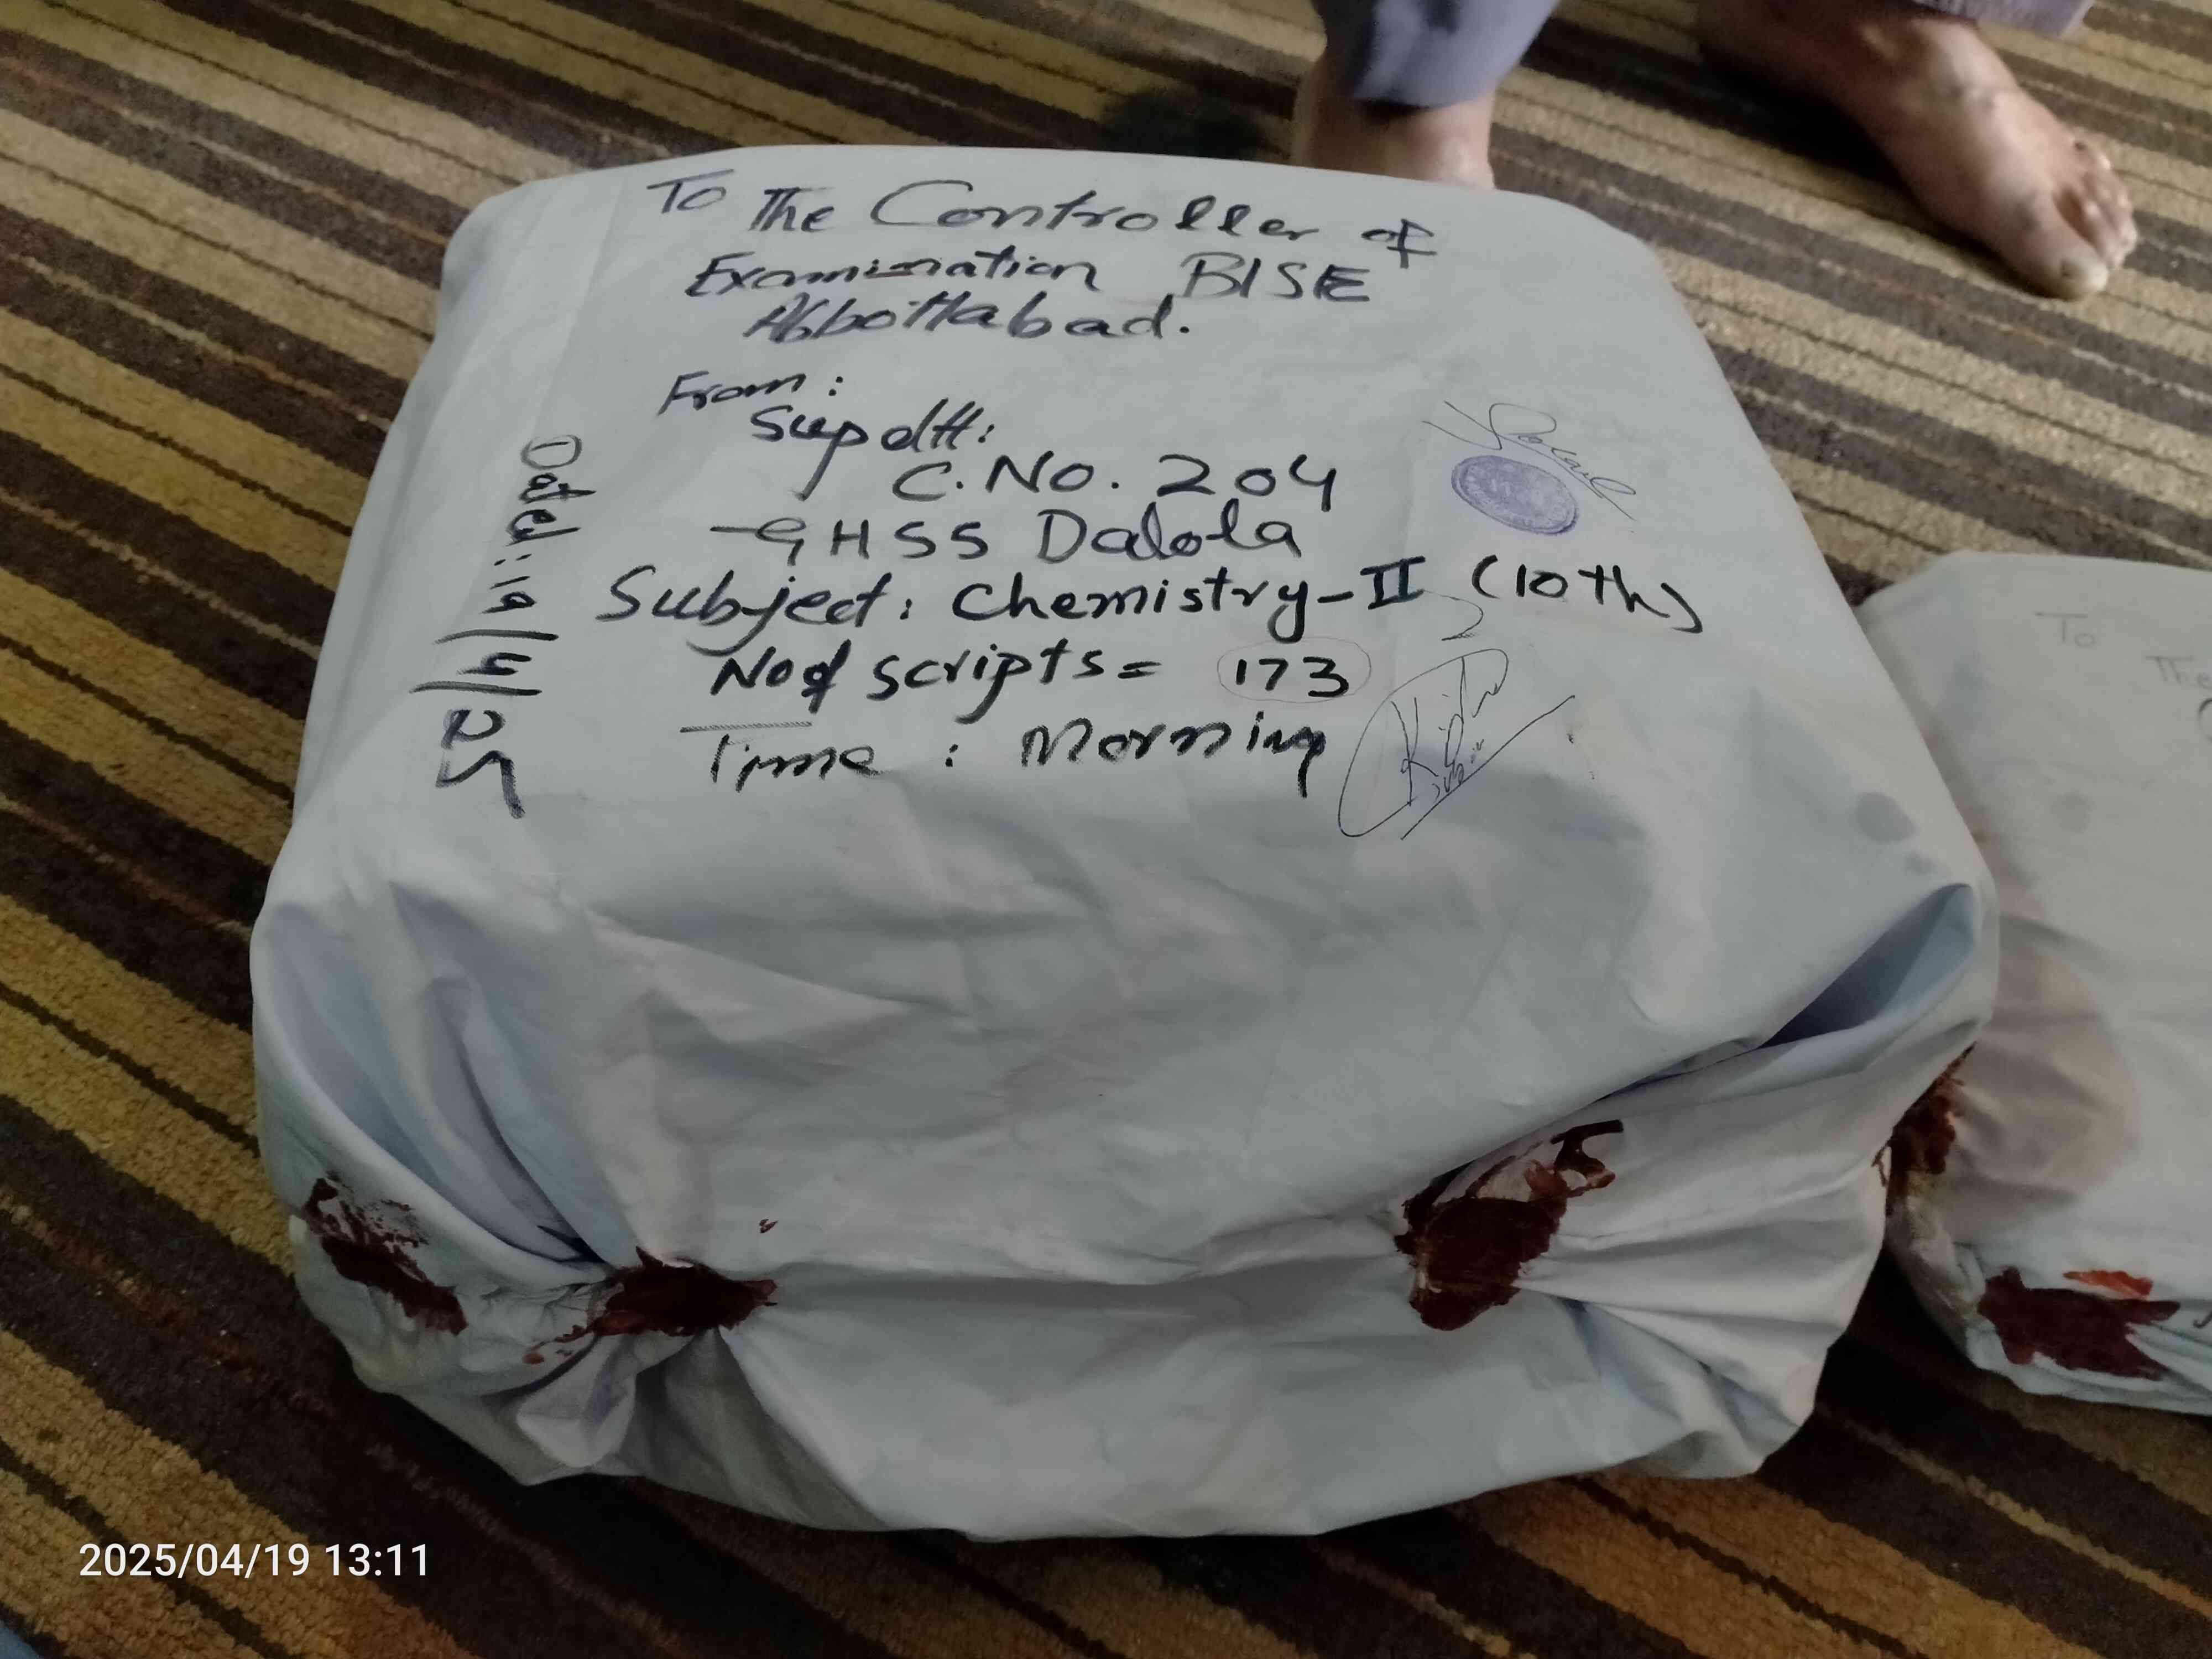 To The Controller of
Examination BISE
Abbottabad.
From:
Supdtt:
C.No. 204
GHSS Dalola
Subject: Chemistry-II (10th)
No of scripts = 173
Time : Morning
Dated: 19/4/25
To
The
2025/04/19 13:11